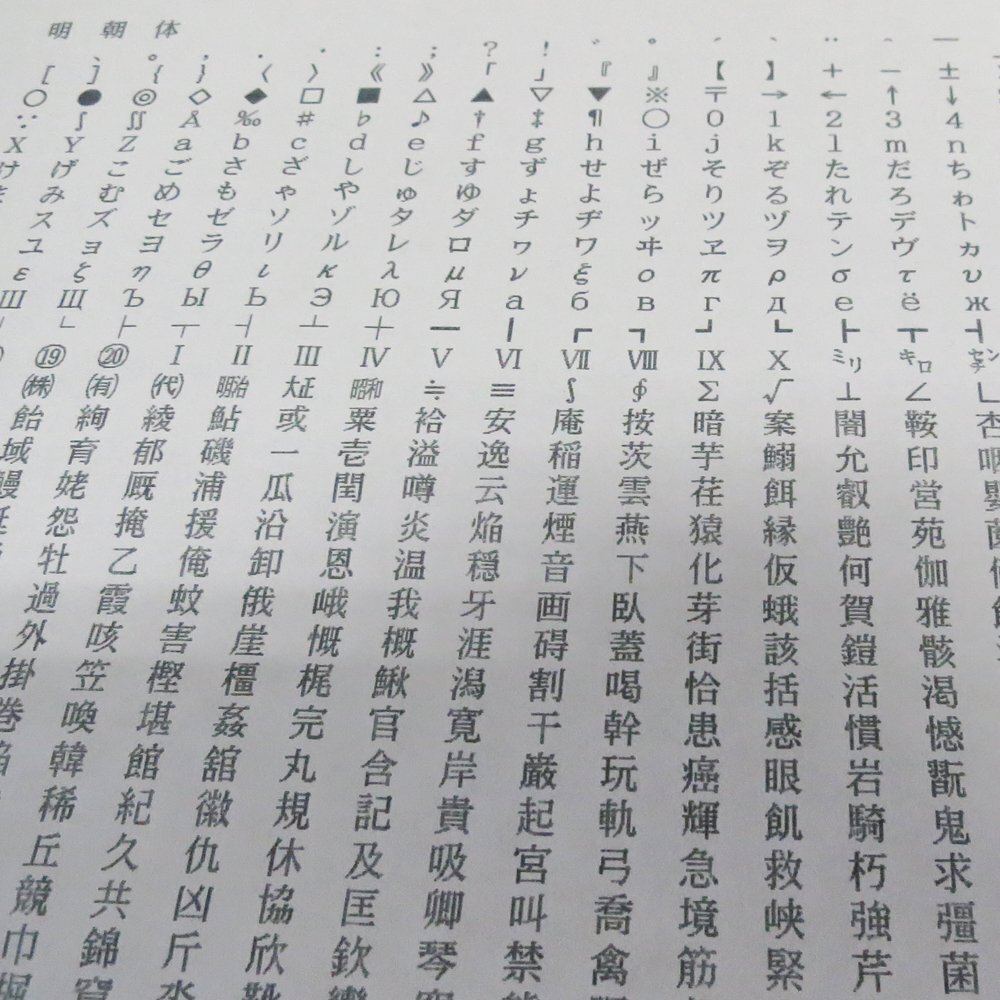 明朝体
． ・ ： ； ？ ！ ゛ ゜ ´ ｀ ¨ ＾ ￣
［ ］ ｛ ｝ 〈 〉 《 》 「 」 『 』 【 】 ＋ － ±
○ ● ◎ ◇ ◆ □ ■ △ ▲ ▽ ▼ ※ 〒 → ← ↑ ↓
∵ ∫ ∬ Å ‰ ♯ ♭ ♪ † ‡ ¶ ◯ 0 1 2 3 4
X Y Z a b c d e f g h i j k l m n
け げ こ ご さ ざ し じ す ず せ ぜ そ ぞ た だ ち
み む め も ゃ や ゅ ゆ ょ よ ら り る れ ろ ゎ
ス ズ セ ゼ ソ ゾ タ ダ チ ヂ ッ ツ ヅ テ デ ト
ユ ョ ヨ ラ リ ル レ ロ ヮ ワ ヰ ヱ ヲ ン ヴ ヵ
ε ζ η θ ι κ λ μ ν ξ ο π ρ σ τ υ
Ш Щ Ъ Ы Ь Э Ю Я а б в г д е ё ж
┘ └ ├ ┬ ┤ ┴ ┼ ━ ┃ ┏ ┓ ┛ ┗ ┣ ┳ ┫
⑲ ⑳ Ⅰ Ⅱ Ⅲ Ⅳ Ⅴ Ⅵ Ⅶ Ⅷ Ⅸ Ⅹ ㍉ ㌔ ㌢
㈱ ㈲ ㈹ ㍾ ㍽ ㍼ ≒ ≡ ∫ ∮ Σ √ ⊥ ∠ ∟
飴 絢 綾 鮎 或 粟 袷 安 庵 按 暗 案 闇 鞍 杏
域 育 郁 磯 一 壱 溢 逸 稲 茨 芋 鰯 允 印 咽
鰻 姥 厩 浦 瓜 閏 噂 云 運 雲 荏 餌 叡 営 嬰
怨 掩 援 沿 演 炎 焔 煙 燕 猿 縁 艶 苑 薗
牡 乙 俺 卸 恩 温 穏 音 下 化 仮 何 伽
過 霞 蚊 俄 峨 我 牙 画 臥 芽 蛾 賀 雅
外 咳 害 崖 慨 概 涯 碍 蓋 街 該 鎧 骸
掛 笠 樫 橿 梶 鰍 潟 割 喝 恰 括 活 渇
巻 喚 堪 姦 完 官 寛 干 幹 患 感 慣 憾
陥 韓 館 舘 丸 含 岸 巌 玩 癌 眼 岩 翫
稀 紀 徽 規 記 貴 起 軌 輝 飢 騎 鬼
丘 久 仇 休 及 吸 宮 弓 急 救 朽 求
競 共 凶 協 匡 卿 叫 喬 境 峡 強 彊
巾 錦 斤 欣 欽 琴 禁 禽 筋 緊 芹 菌